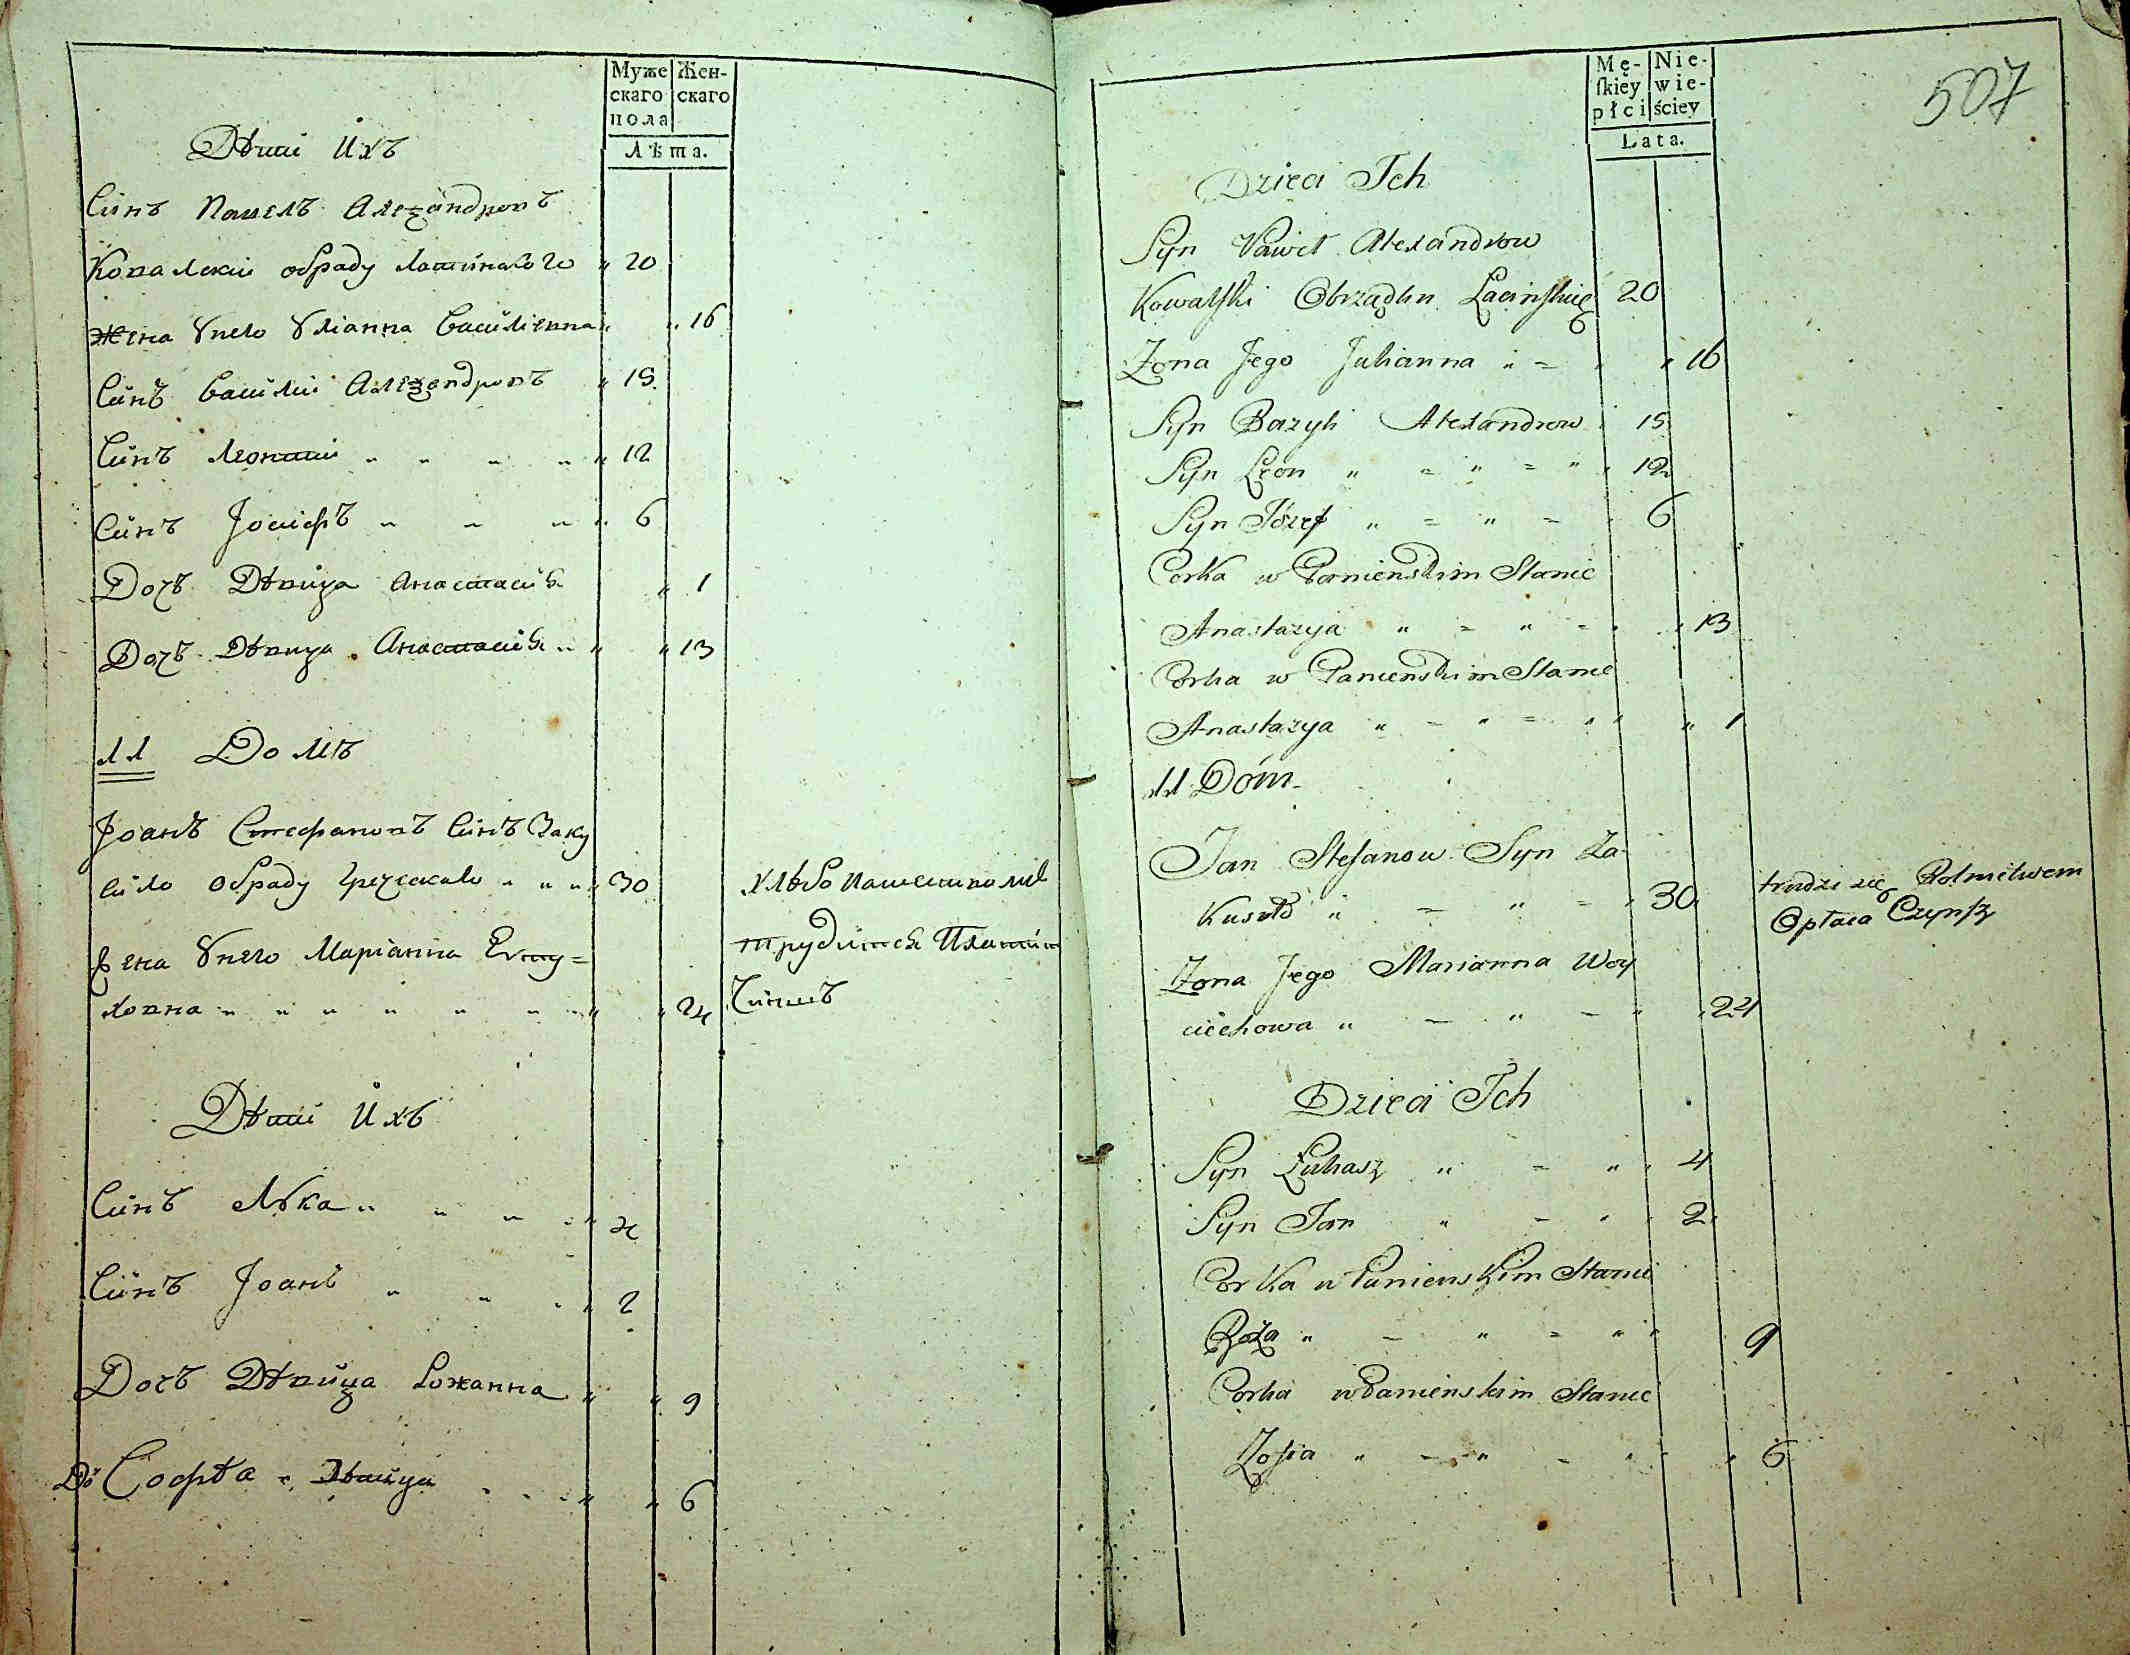 Муже Жен-
скаго скаго
пола
Лѣта.
Дѣти Ихъ
Синъ Павелъ Алеѯандровъ
Ковалскій обряду латинскаго " 20
Жена Унего Улiанна Василiевна " " 16
Синъ Василiй Алеѯандровъ " 15
Синъ Леонтiй " " " " " 12
Синъ Јосифъ " " " " 6
Дочъ Дѣвица Анастасiѣ " 1
Дочъ Дѣвица Анастасiѣ " " " 13
11 Домъ
Јоанъ Стефановъ Синъ Заку
сило обряду Греческаго " " " 30
хлѣбопашествомъ
Жена Унего Марiанна
трудится Платит
ловна " " " " " " " " 24
Чиншъ
Дѣти Ихъ
Синъ Лѵка " " " " " 4
Синъ Јоанъ " " " " 2
Дочъ Дѣвица Рожанна " " 9
До Софѣа Дѣвица " " 6
507
Mę- Nie-
ſkiey wie-
płci ściey
Lata.
Dzieci Ich
Syn Paweł Alexandrow
Kowalſki Obrządku Łacinſkieg 20
Żona Jego Julianna " = " " 16
Syn Bazyli Alexandrow 15
Syn Leon " = " = " " 12
Syn Józef " = " = 6
Corka w Panienskim Stanie
Anastazya " = " = " " 13
Corka w Panienskim Stanie
Anastazya " = " = " " " 1
11 Dóm
Jan Stefanow Syn Za
kusiło " = " = " 30
trudzi się Rolnictwem
Opłaca Czynſz
Żona Jego Marianna Woy
ciechowa " = " = " " 24
Dzieci Ich
Syn Łukasz " = " " 4
Syn Jan " = " 2
Corka w Panienskim Stanie
Roża " = " = " " 9
Corka w Panienskim Stanie
Zofia " = " = " " " 6